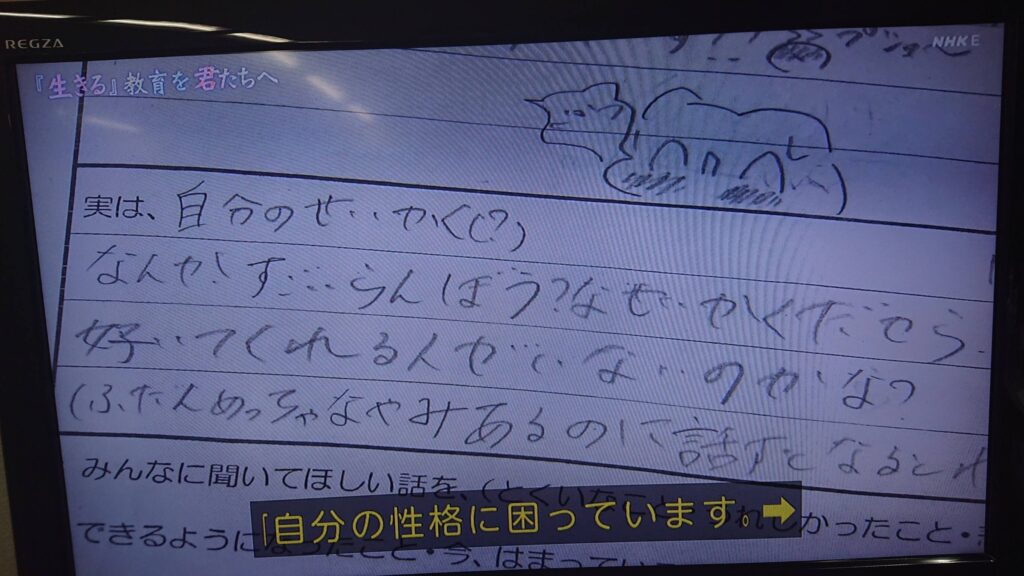 REGZA
NHK E
『生きる』教育を君たちへ
実は、自分のせいかく(?)
なんか、すごいらんぼう?なせいかくだから
好いてくれる人がいないのかな?
(ふだんめっちゃなやみあるのに話すとなると
みんなに聞いてほしい話を、(とくいなこと
できるように
かったこと・
こと・今、はまってい
「自分の性格に困っています。➡